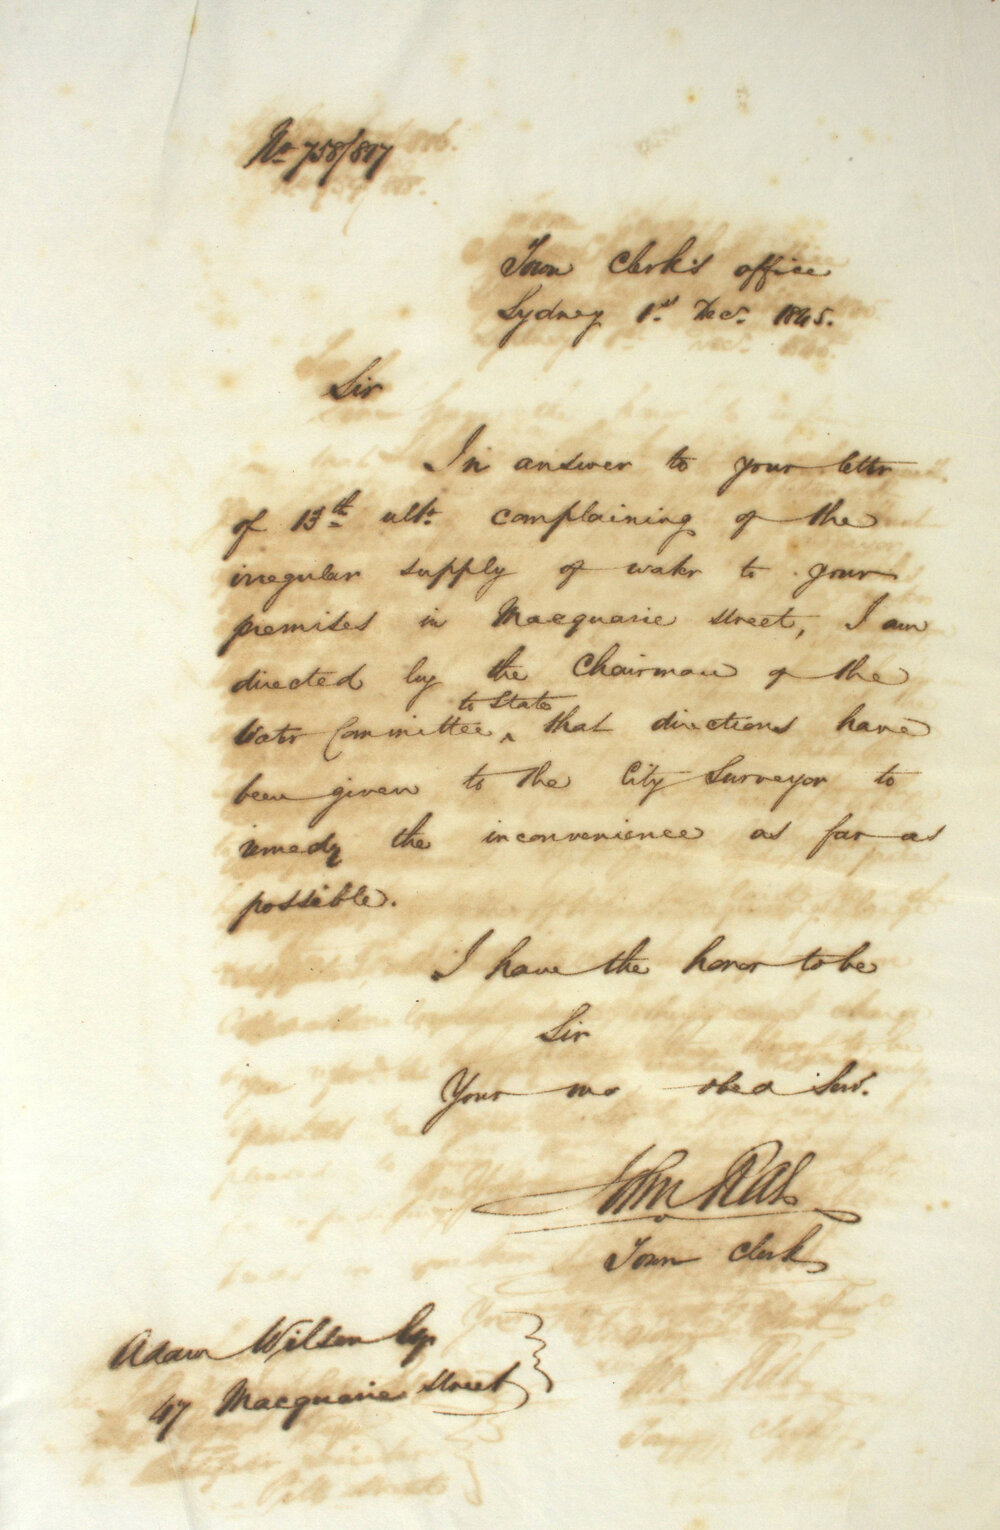 No 758/807
Town Clerk's office
Sydney 1st Decr. 1845.
Sir
In answer to your letter
of 13th ulto. complaining of the
irregular supply of water to your
premises in Macquarie street, I am
directed by the Chairman of the
to state
Water Committee ^ that directions have
been given to the City Surveyor to
remedy the inconvenience as far as
possible.
I have the honor to be
Sir
Your mo obed Servt.
John Rae
Town Clerk
Adam Wilson Esq.
47 Macquarie street